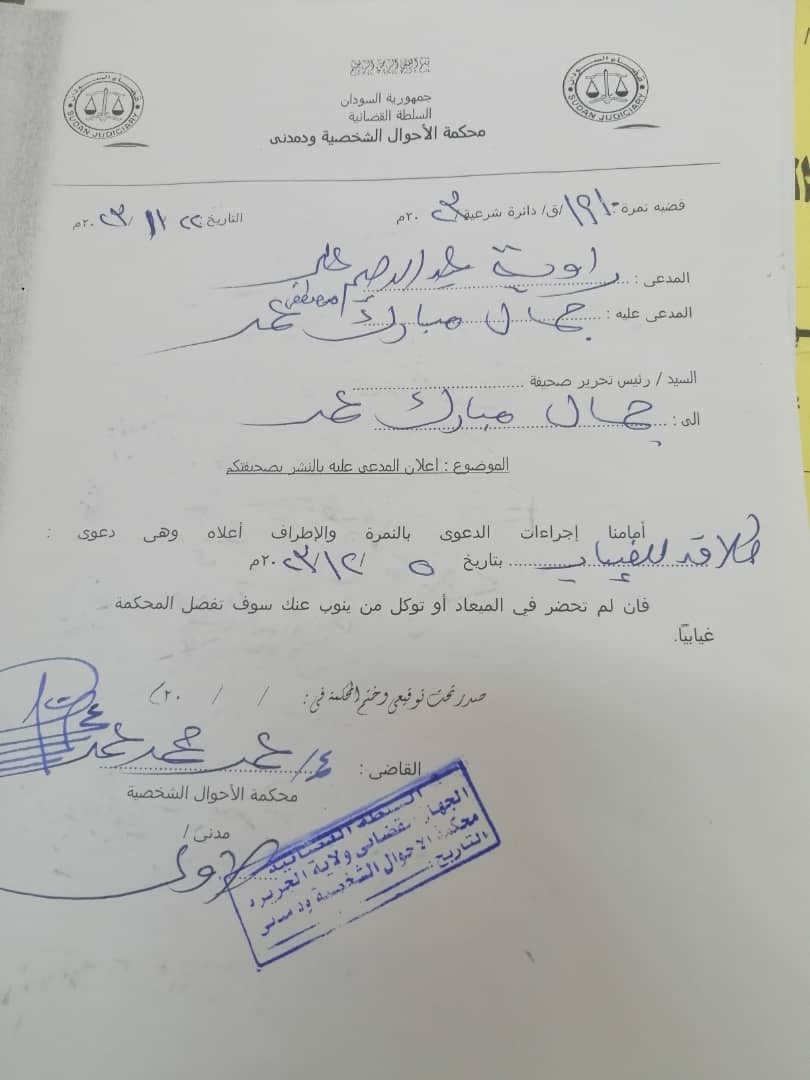 جمهورية السودان
السلطة القضائية
محكمة الأحوال الشخصية ودمدنى
SUDAN JUDICIARY
SUDAN JUDICIARY
قضيه نمرة: ١٩١٠/ق/ دائرة شرعية ٢٠٢٣م
التاريخ: ٢٢ /١١ /٢٠٢٣م
المدعى : راوية عبد الرحيم على
المدعى عليه : جمال مبارك مصطفى عمر
السيد / رئيس تحرير صحيفة
الى : جمال مبارك عمر
الموضوع : اعلان المدعى عليه بالنشر بصحيفتكم
أمامنا إجراءات الدعوى بالنمرة والإطراف أعلاه وهى دعوى :
طلاق للغياب بتاريخ ٥ /١٢/ ٢٠٢٣م
فان لم تحضر في الميعاد أو توكل من ينوب عنك سوف تفصل المحكمة
غيابيًا.
صدر تحت توقيعى وختم المحكمة فى : / / ٢٠
القاضى : ع/ عمر محمد عمر
محكمة الأحوال الشخصية
مدنى /
السلطة القضائية
الجهاز القضائى ولاية الجزيرة
محكمة الاحوال الشخصية ودمدنى
التاريخ :